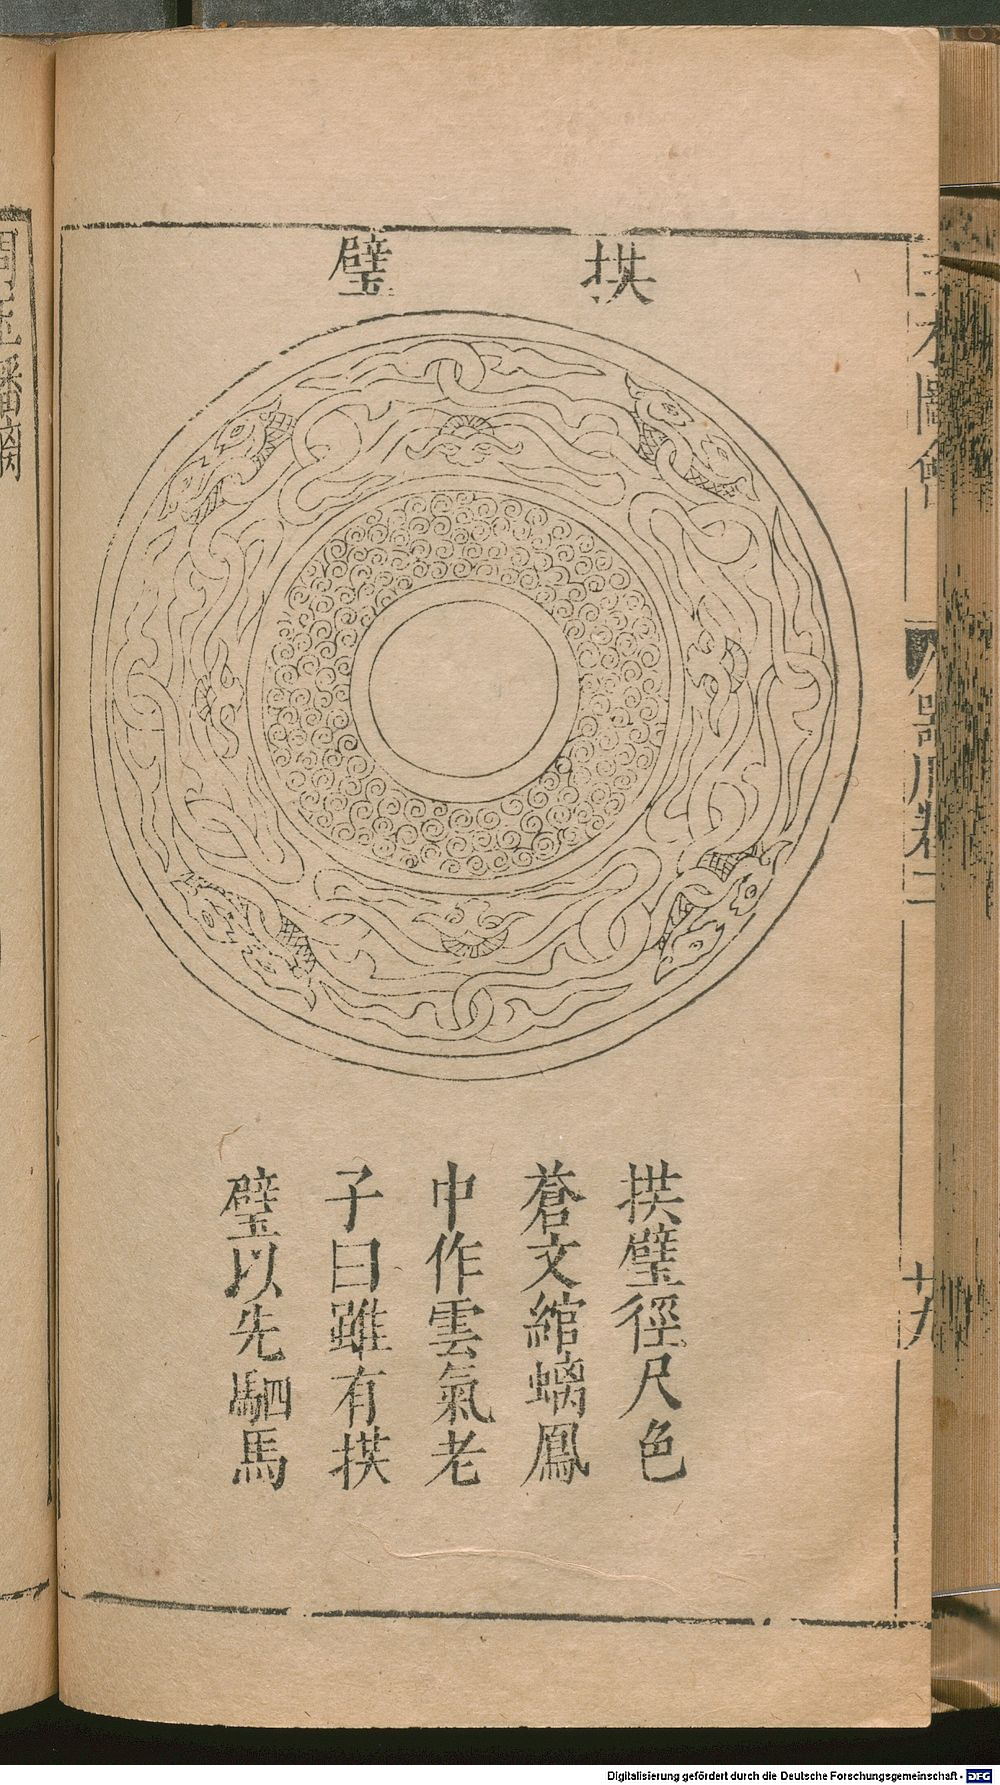 拱璧
拱璧徑尺色
蒼文綰螭鳳
中作雲氣老
子曰雖有拱
璧以先駟馬
三才圖會
器用卷二
廿九
Digitalisierung gefördert durch die Deutsche Forschungsgemeinschaft - DFG